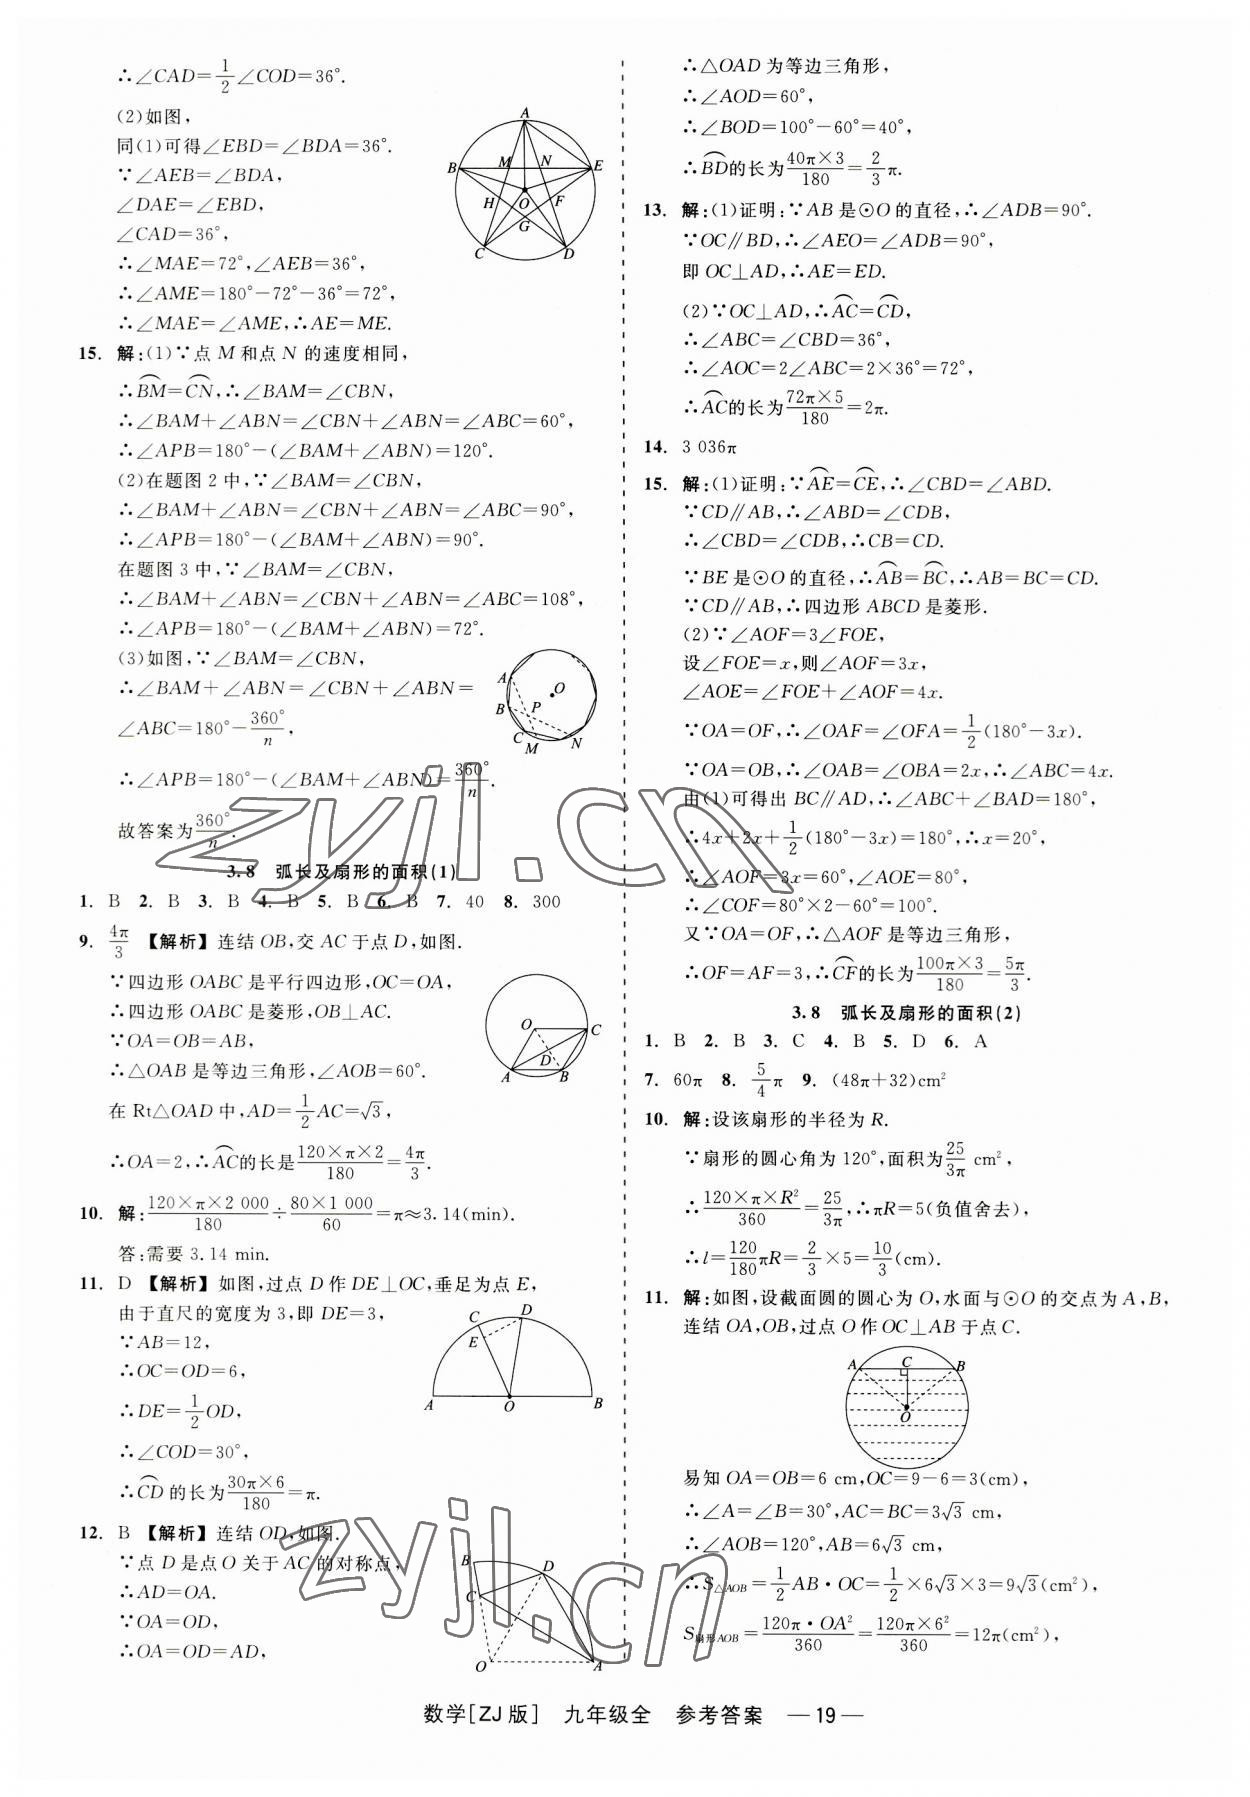 ∴∠CAD=1/2∠COD=36°.
(2)如图,
同(1)可得∠EBD=∠BDA=36°.
∵∠AEB=∠BDA,
∠DAE=∠EBD,
∠CAD=36°,
∴∠MAE=72°,∠AEB=36°,
∴∠AME=180°-72°-36°=72°,
∴∠MAE=∠AME,∴AE=ME.
A
B
M
N
E
H
O
F
G
C
D
15. 解:(1)∵点 M 和点 N 的速度相同,
∴BM⌒=CN⌒,∴∠BAM=∠CBN,
∴∠BAM+∠ABN=∠CBN+∠ABN=∠ABC=60°,
∴∠APB=180°-(∠BAM+∠ABN)=120°.
(2)在题图 2 中,∵∠BAM=∠CBN,
∴∠BAM+∠ABN=∠CBN+∠ABN=∠ABC=90°,
∴∠APB=180°-(∠BAM+∠ABN)=90°.
在题图 3 中,∵∠BAM=∠CBN,
∴∠BAM+∠ABN=∠CBN+∠ABN=∠ABC=108°,
∴∠APB=180°-(∠BAM+∠ABN)=72°.
(3)如图,∵∠BAM=∠CBN,
∴∠BAM+∠ABN=∠CBN+∠ABN=
∠ABC=180°-360°/n,
∴∠APB=180°-(∠BAM+∠ABN)=360°/n.
故答案为360°/n.
A
O
B
P
C
M
N
3.8 弧长及扇形的面积(1)
1. B 2. B 3. B 4. B 5. B 6. B 7. 40 8. 300
9. 4π/3 【解析】连结 OB,交 AC 于点 D,如图.
∵四边形 OABC 是平行四边形,OC=OA,
∴四边形 OABC 是菱形,OB⊥AC.
∵OA=OB=AB,
∴△OAB 是等边三角形,∠AOB=60°.
在 Rt△OAD 中,AD=1/2AC=√3,
∴OA=2,∴AC⌒的长是120×π×2/180=4π/3.
O
C
D
A
B
10. 解:120×π×2 000/180÷80×1 000/60=π≈3.14(min).
答:需要 3.14 min.
11. D 【解析】如图,过点 D 作 DE⊥OC,垂足为点 E,
由于直尺的宽度为 3,即 DE=3,
∵AB=12,
∴OC=OD=6,
∴DE=1/2OD,
∴∠COD=30°,
∴CD⌒的长为30π×6/180=π.
C
D
E
A
O
B
12. B 【解析】连结 OD,如图.
∵点 D 是点 O 关于 AC 的对称点,
∴AD=OA.
∵OA=OD,
∴OA=OD=AD,
B
D
C
O
A
∴△OAD 为等边三角形,
∴∠AOD=60°,
∴∠BOD=100°-60°=40°,
∴BD⌒的长为40π×3/180=2/3π.
13. 解:(1)证明:∵AB 是⊙O 的直径,∴∠ADB=90°.
∵OC∥BD,∴∠AEO=∠ADB=90°,
即 OC⊥AD,∴AE=ED.
(2)∵OC⊥AD,∴AC⌒=CD⌒,
∴∠ABC=∠CBD=36°,
∴∠AOC=2∠ABC=2×36°=72°,
∴AC⌒的长为72π×5/180=2π.
14. 3 036π
15. 解:(1)证明:∵AE⌒=CE⌒,∴∠CBD=∠ABD.
∵CD∥AB,∴∠ABD=∠CDB,
∴∠CBD=∠CDB,∴CB=CD.
∵BE 是⊙O 的直径,∴AB⌒=BC⌒,∴AB=BC=CD.
∵CD∥AB,∴四边形 ABCD 是菱形.
(2)∵∠AOF=3∠FOE,
设∠FOE=x,则∠AOF=3x,
∠AOE=∠FOE+∠AOF=4x.
∵OA=OF,∴∠OAF=∠OFA=1/2(180°-3x).
∵OA=OB,∴∠OAB=∠OBA=2x,∴∠ABC=4x.
由(1)可得出 BC∥AD,∴∠ABC+∠BAD=180°,
∴4x+2x+1/2(180°-3x)=180°,∴x=20°,
∴∠AOF=3x=60°,∠AOE=80°,
∴∠COF=80°×2-60°=100°.
又∵OA=OF,∴△AOF 是等边三角形,
∴OF=AF=3,∴CF⌒的长为100π×3/180=5π/3.
3.8 弧长及扇形的面积(2)
1. B 2. B 3. C 4. B 5. D 6. A
7. 60π 8. 5/4π 9. (48π+32)cm²
10. 解:设该扇形的半径为 R.
∵扇形的圆心角为 120°,面积为25/3π cm²,
∴120×π×R²/360=25/3π,∴πR=5(负值舍去),
∴l=120/180πR=2/3×5=10/3(cm).
11. 解:如图,设截面圆的圆心为 O,水面与⊙O 的交点为 A,B,
连结 OA,OB,过点 O 作 OC⊥AB 于点 C.
A
C
B
O
易知 OA=OB=6 cm,OC=9-6=3(cm),
∴∠A=∠B=30°,AC=BC=3√3 cm,
∴∠AOB=120°,AB=6√3 cm,
∴S△AOB=1/2AB·OC=1/2×6√3×3=9√3(cm²),
S扇形AOB=120π·OA²/360=120π×6²/360=12π(cm²),
zyjl.cn
zyjl.cn
数学[ZJ版] 九年级全 参考答案 —19—